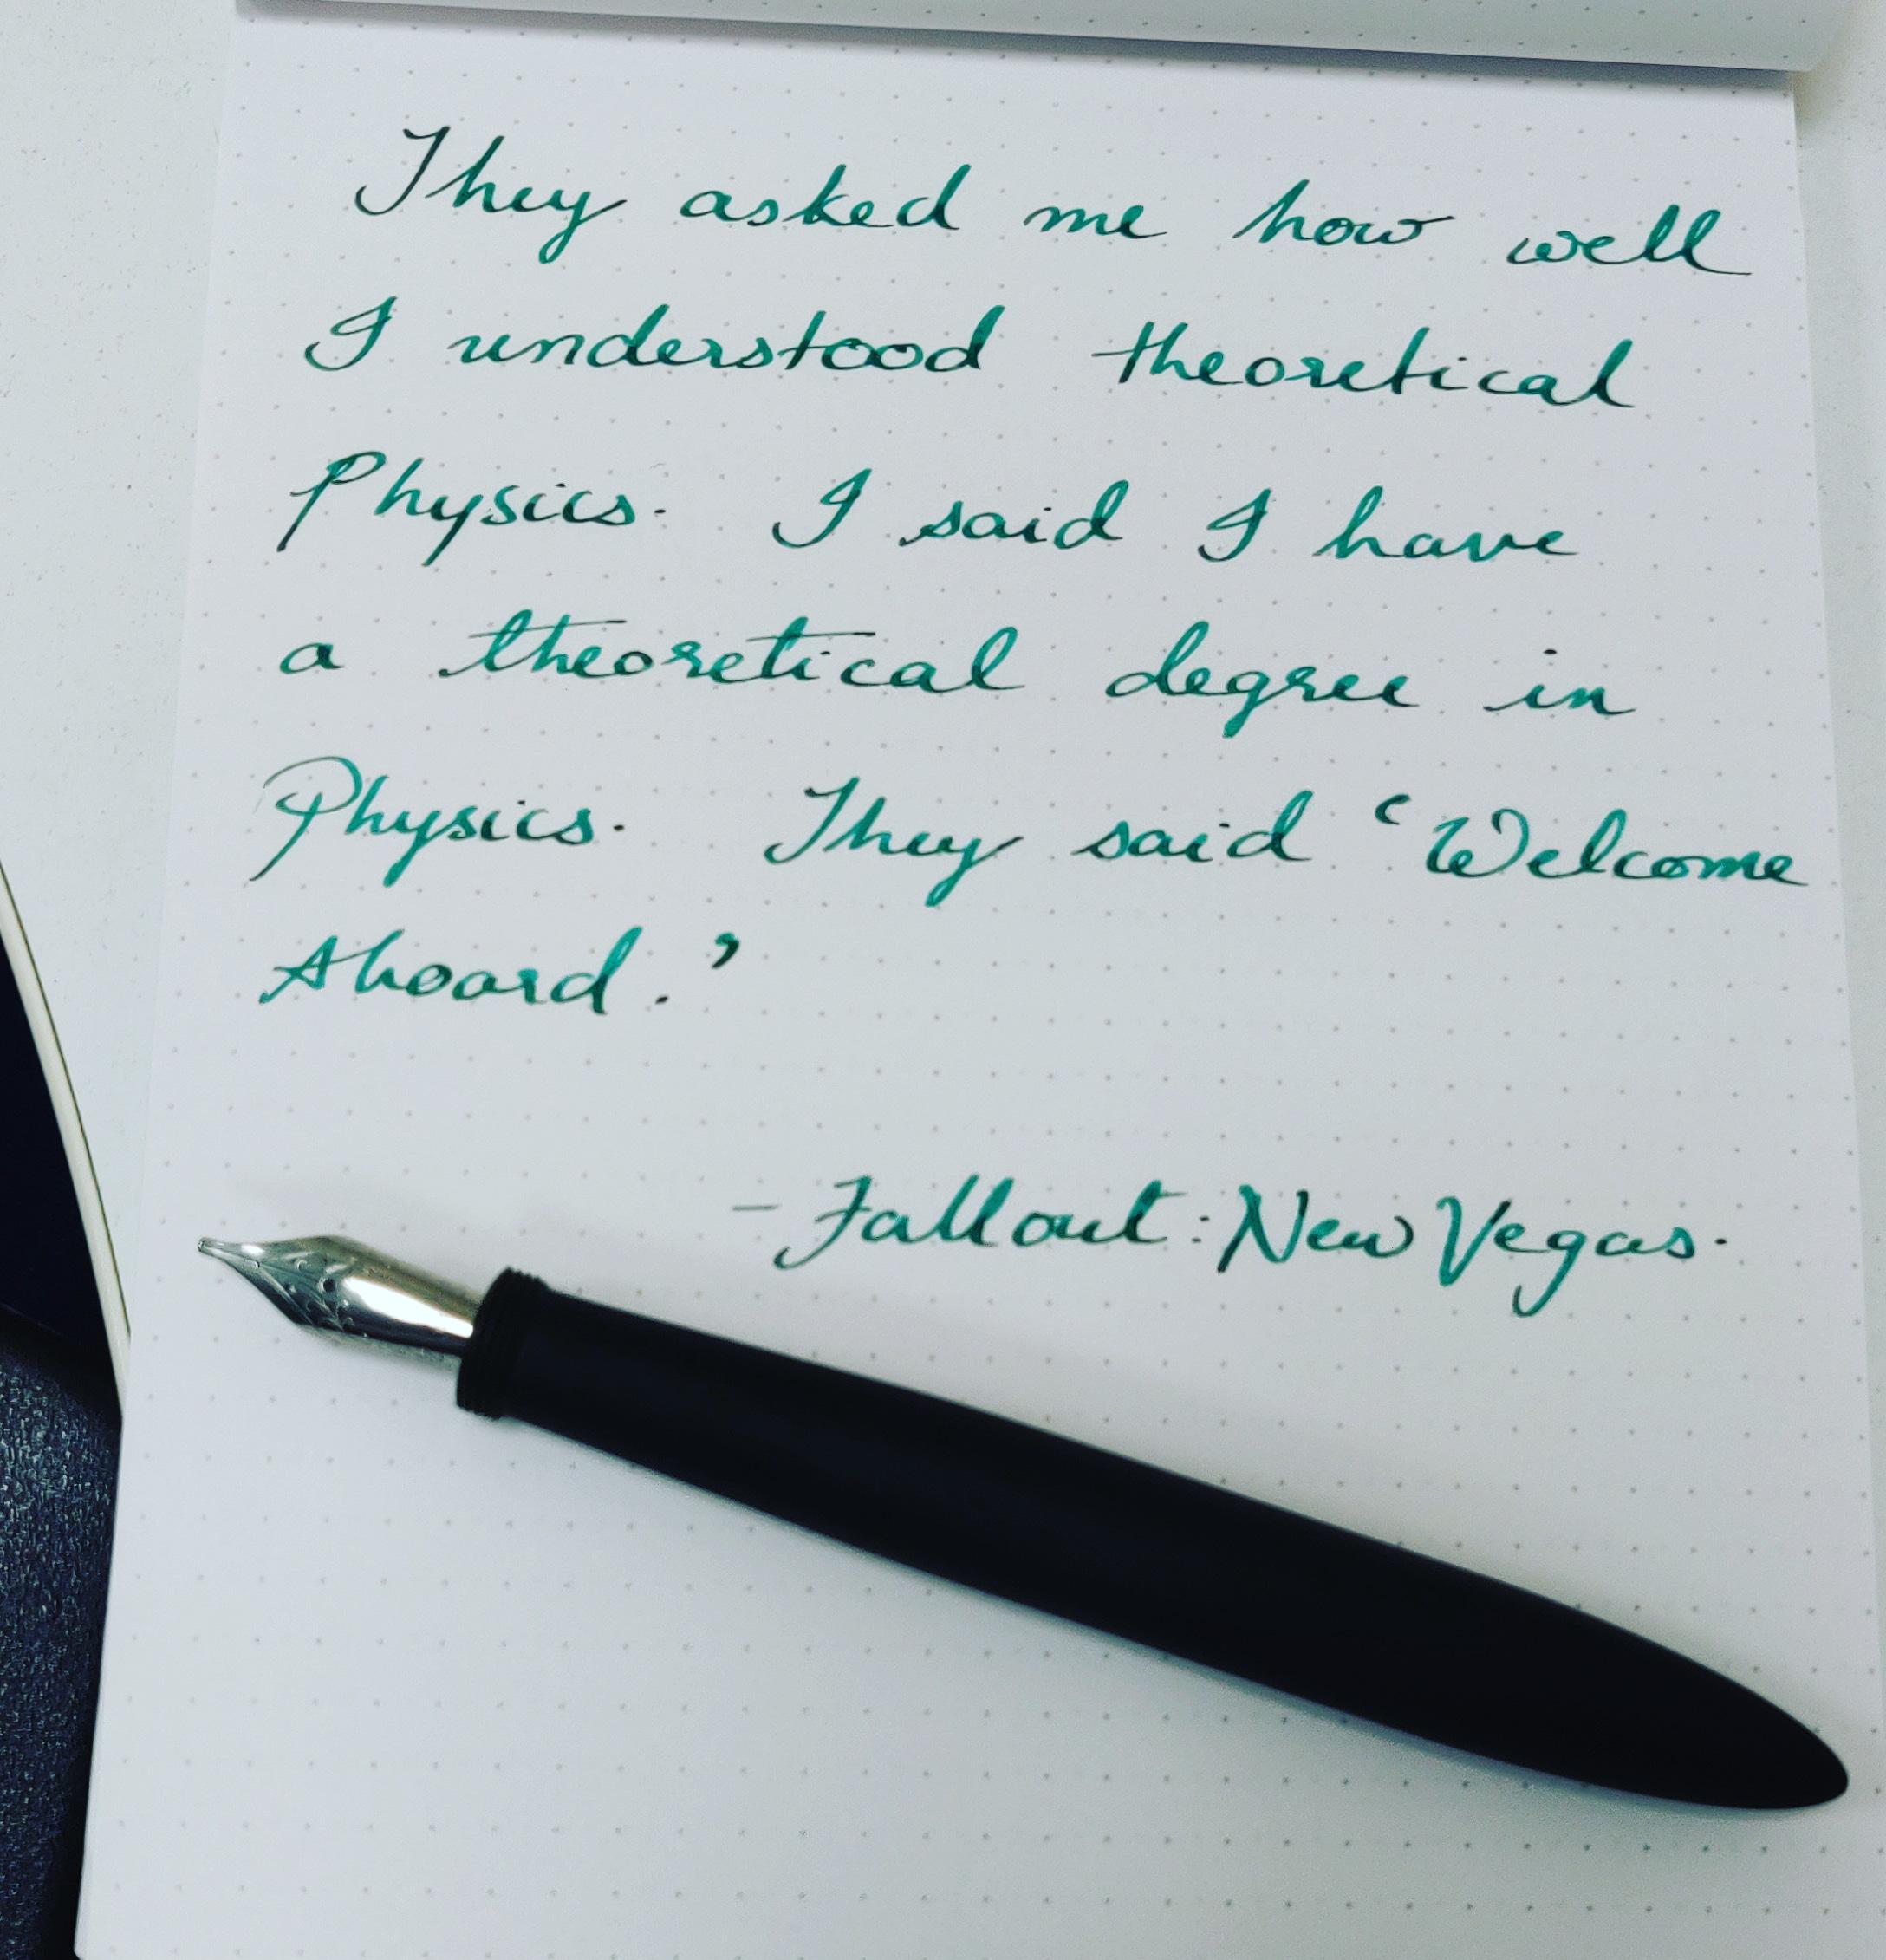 They asked me how well
I understood theoretical
Physics. I said I have
a theoretical degree in
Physics. They said ‘Welcome
Aboard.’
- Fallout: New Vegas.